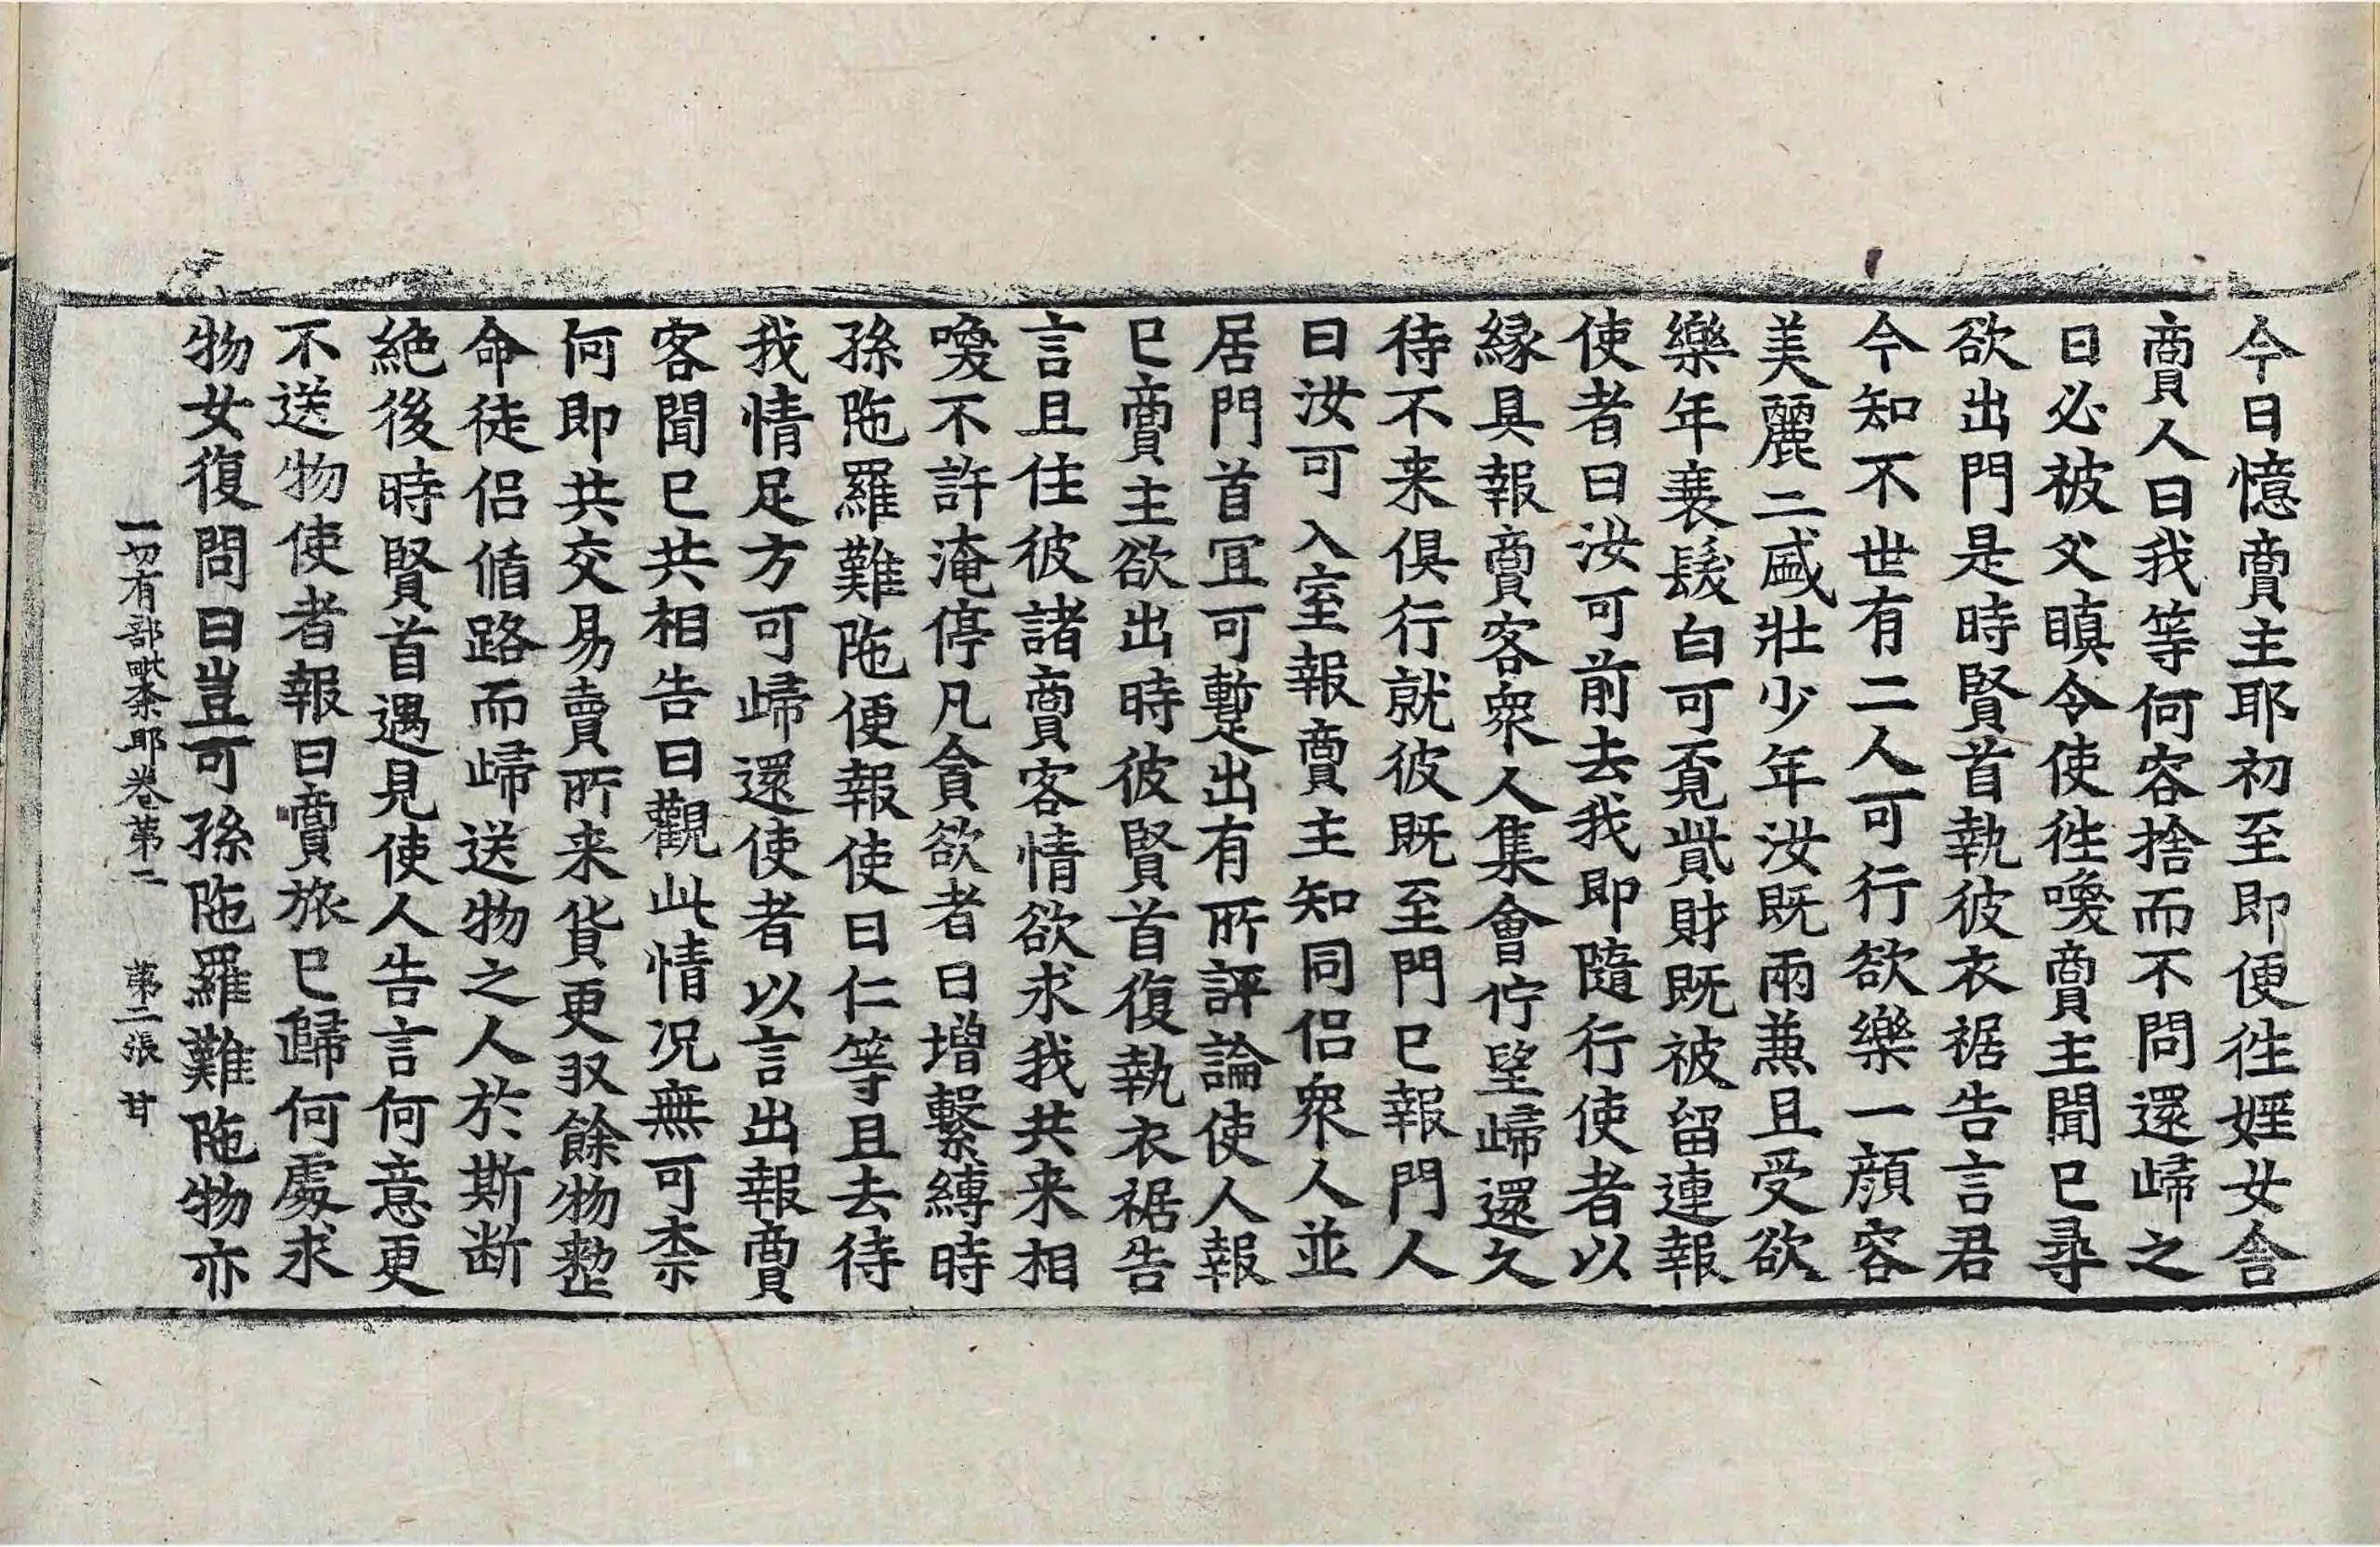 今日憶賣主耶初至即便往婬女舍
賣人曰我等何容捨而不問還歸之
日必被父瞋令使往喚賣主聞已尋
欲出門是時賢首執彼衣裾告言君
今知不世有二人可行欲樂一顔容
美麗二盛壯少年汝既兩兼且受欲
樂年衰髮白可覓貲財既被留連報
使者曰汝可前去我即隨行使者以
緣具報賣客衆人集會佇望歸還久
待不来俱行就彼既至門已報門人
曰汝可入室報賣主知同侣衆人並
居門首冝可蹔出有所評論使人報
已賣主欲出時彼賢首復執衣裾告
言且住彼諸賣客情欲求我共来相
喚不許淹停凡貪欲者日增繫縛時
孫陁羅難陁便報使曰仁等且去待
我情足方可歸還使者以言出報賣
客聞已共相告曰觀此情况無可柰
何即共交易賣所来貨更収餘物整
命徒侣循路而歸送物之人於斯断
絶後時賢首遇見使人告言何意更
不送物使者報曰賣旅已歸何處求
物女復問曰豈可孫陁羅難陁物亦
一切有部毗柰耶卷第二　第二張　甘